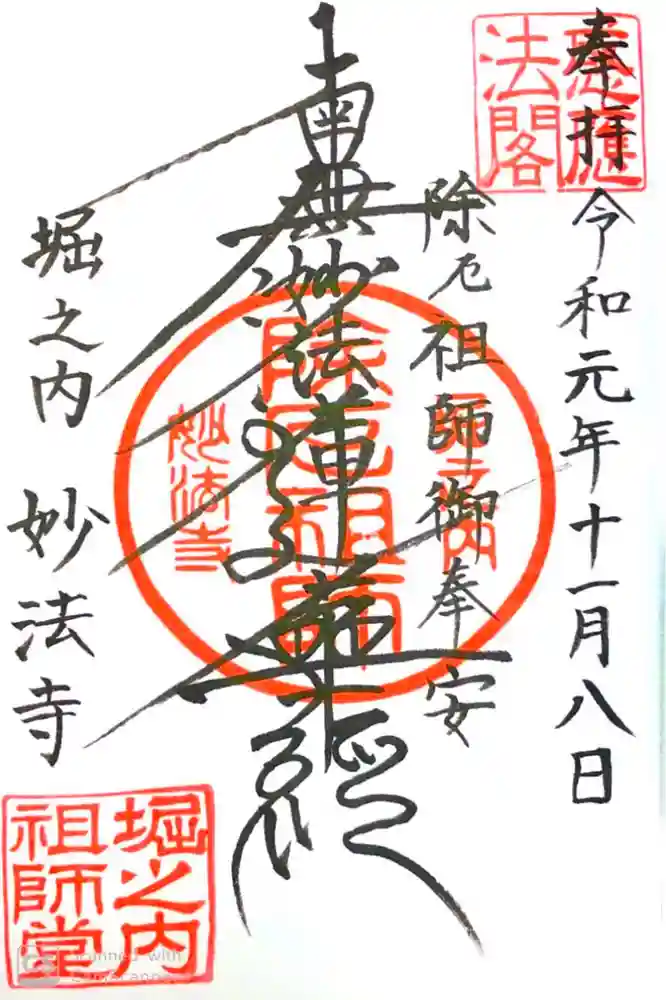 奉拝
令和元年十一月八日
除厄祖師御奉安
南無妙法蓮華経
堀之内
妙法寺
法閣
除厄祖師
妙法寺
堀之内
祖師堂
Scanned with